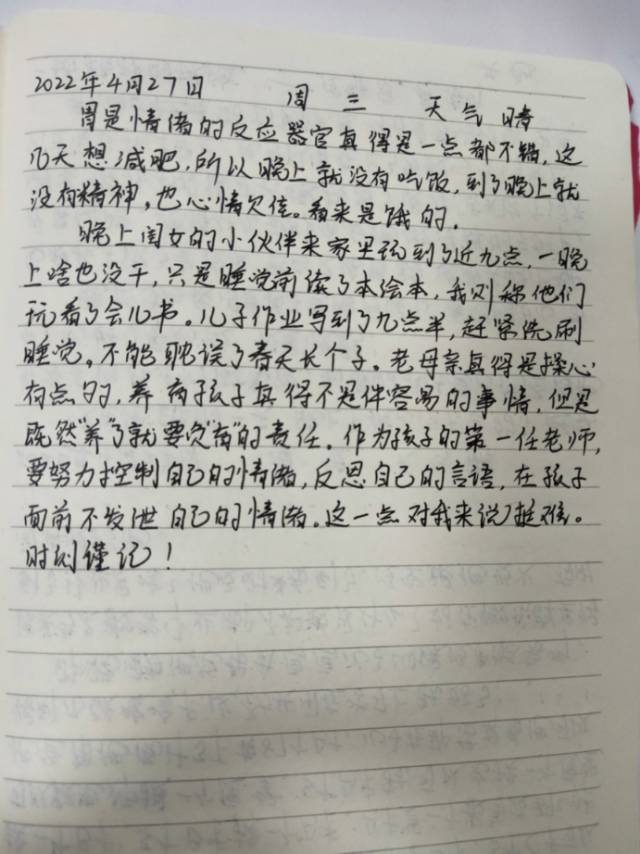 2022年4月27日 周三 天气晴
胃是情绪的反应器官真得是一点都不错,这
几天想减肥,所以晚上就没有吃饭,到了晚上就
没有精神,也心情欠佳。看来是饿的。
晚上闺女的小伙伴来家里玩到了近九点,一晚
上啥也没干,只是睡觉前读了本绘本,我则称他们
玩看了会儿书。儿子作业写到了九点半,赶紧洗刷
睡觉。不能耽误了春天长个子。老母亲真得是操心
有点多的,养育孩子真得不是件容易的事情,但是
既然"养"了就要负"育"的责任。作为孩子的第一任老师,
要努力控制自己的情绪,反思自己的言语,在孩子
面前不发泄自己的情绪。这一点对我来说挺难。
时刻谨记!